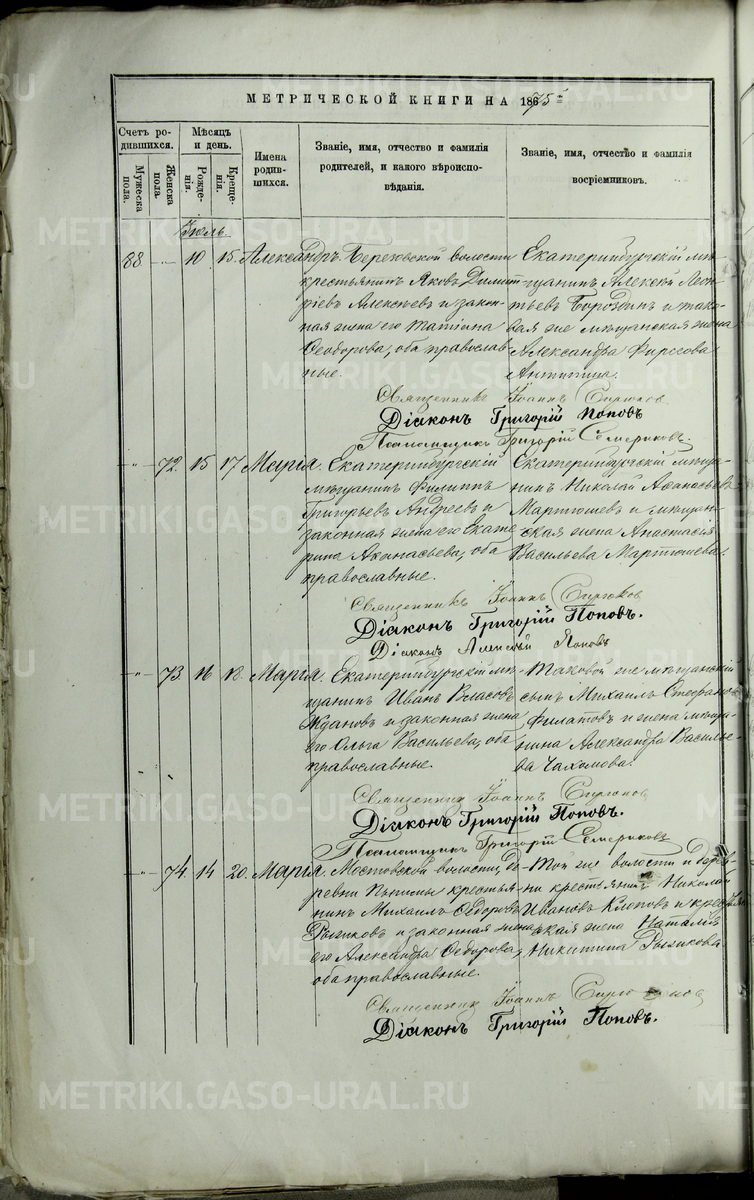 МЕТРИЧЕСКОЙ КНИГИ НА 1875
Счетъ родившихся.
Мужеска пола.
Женска пола.
Мѣсяцъ и день.
Рожденія.
Крещенія.
Имена родившихся.
Званіе, имя, отчество и фамилія родителей, и какого вѣроисповѣданія.
Званіе, имя, отчество и фамилія воспріемниковъ.
Іюль
88 10 15. Александръ.
Березовской волости
крестьянинъ Яковъ Димит
ріевъ Алексѣевъ и закон-
ная жена его Татіана
Ѳеодорова, оба православ-
ные.
Екатеринбургскій мѣ-
щанинъ Алексѣй Леон
тьевъ Бородинъ и тако-
вая же мѣщанская жена
Александра Фирсова
Антипина.
Священникъ Іоаннъ
Діаконъ Григорій Поповъ
Григорій Семериковъ.
72. 15 17 Марія.
Екатеринбургскій
мѣщанинъ Филиппъ
Григорьевъ Андреевъ и
законная жена его Екате
рина Аѳанасьева, оба
православные.
Екатеринбургскій мѣща-
нинъ Николай Аѳанасьевъ
Мартюшевъ и мѣщан-
ская жена Анастасія
Васильева Мартюшева.
Священникъ Іоаннъ
Діаконъ Григорій Поповъ.
Діаконъ Алексѣй Поповъ
73. 16 18. Марія.
Екатеринбургскій мѣ-
щанинъ Иванъ Власовъ
Ждановъ и законная жена
его Ольга Васильева, оба
православные.
Таковой же мѣщанскій
сынъ Михаилъ Стефановъ
Филатовъ и жена мѣща-
нина Александра Василье-
ва
Священникъ Іоаннъ
Діаконъ Григорій Поповъ.
Григорій Семериковъ
74. 14 20. Марія.
Мостовской волости, де-
ревни Пышмы крестья-
нинъ Михаилъ Ѳедоровъ
Рыжковъ и законная жена
его Александра Ѳедорова,
оба православные.
Той же волости и дерев-
ни крестьянинъ Николай
Ивановъ Клоповъ и крестьян
ская жена Наталія
Никитина Рыжкова
Священникъ Іоаннъ
Діаконъ Григорій Поповъ.
METRIKI.GASO-URAL.RU